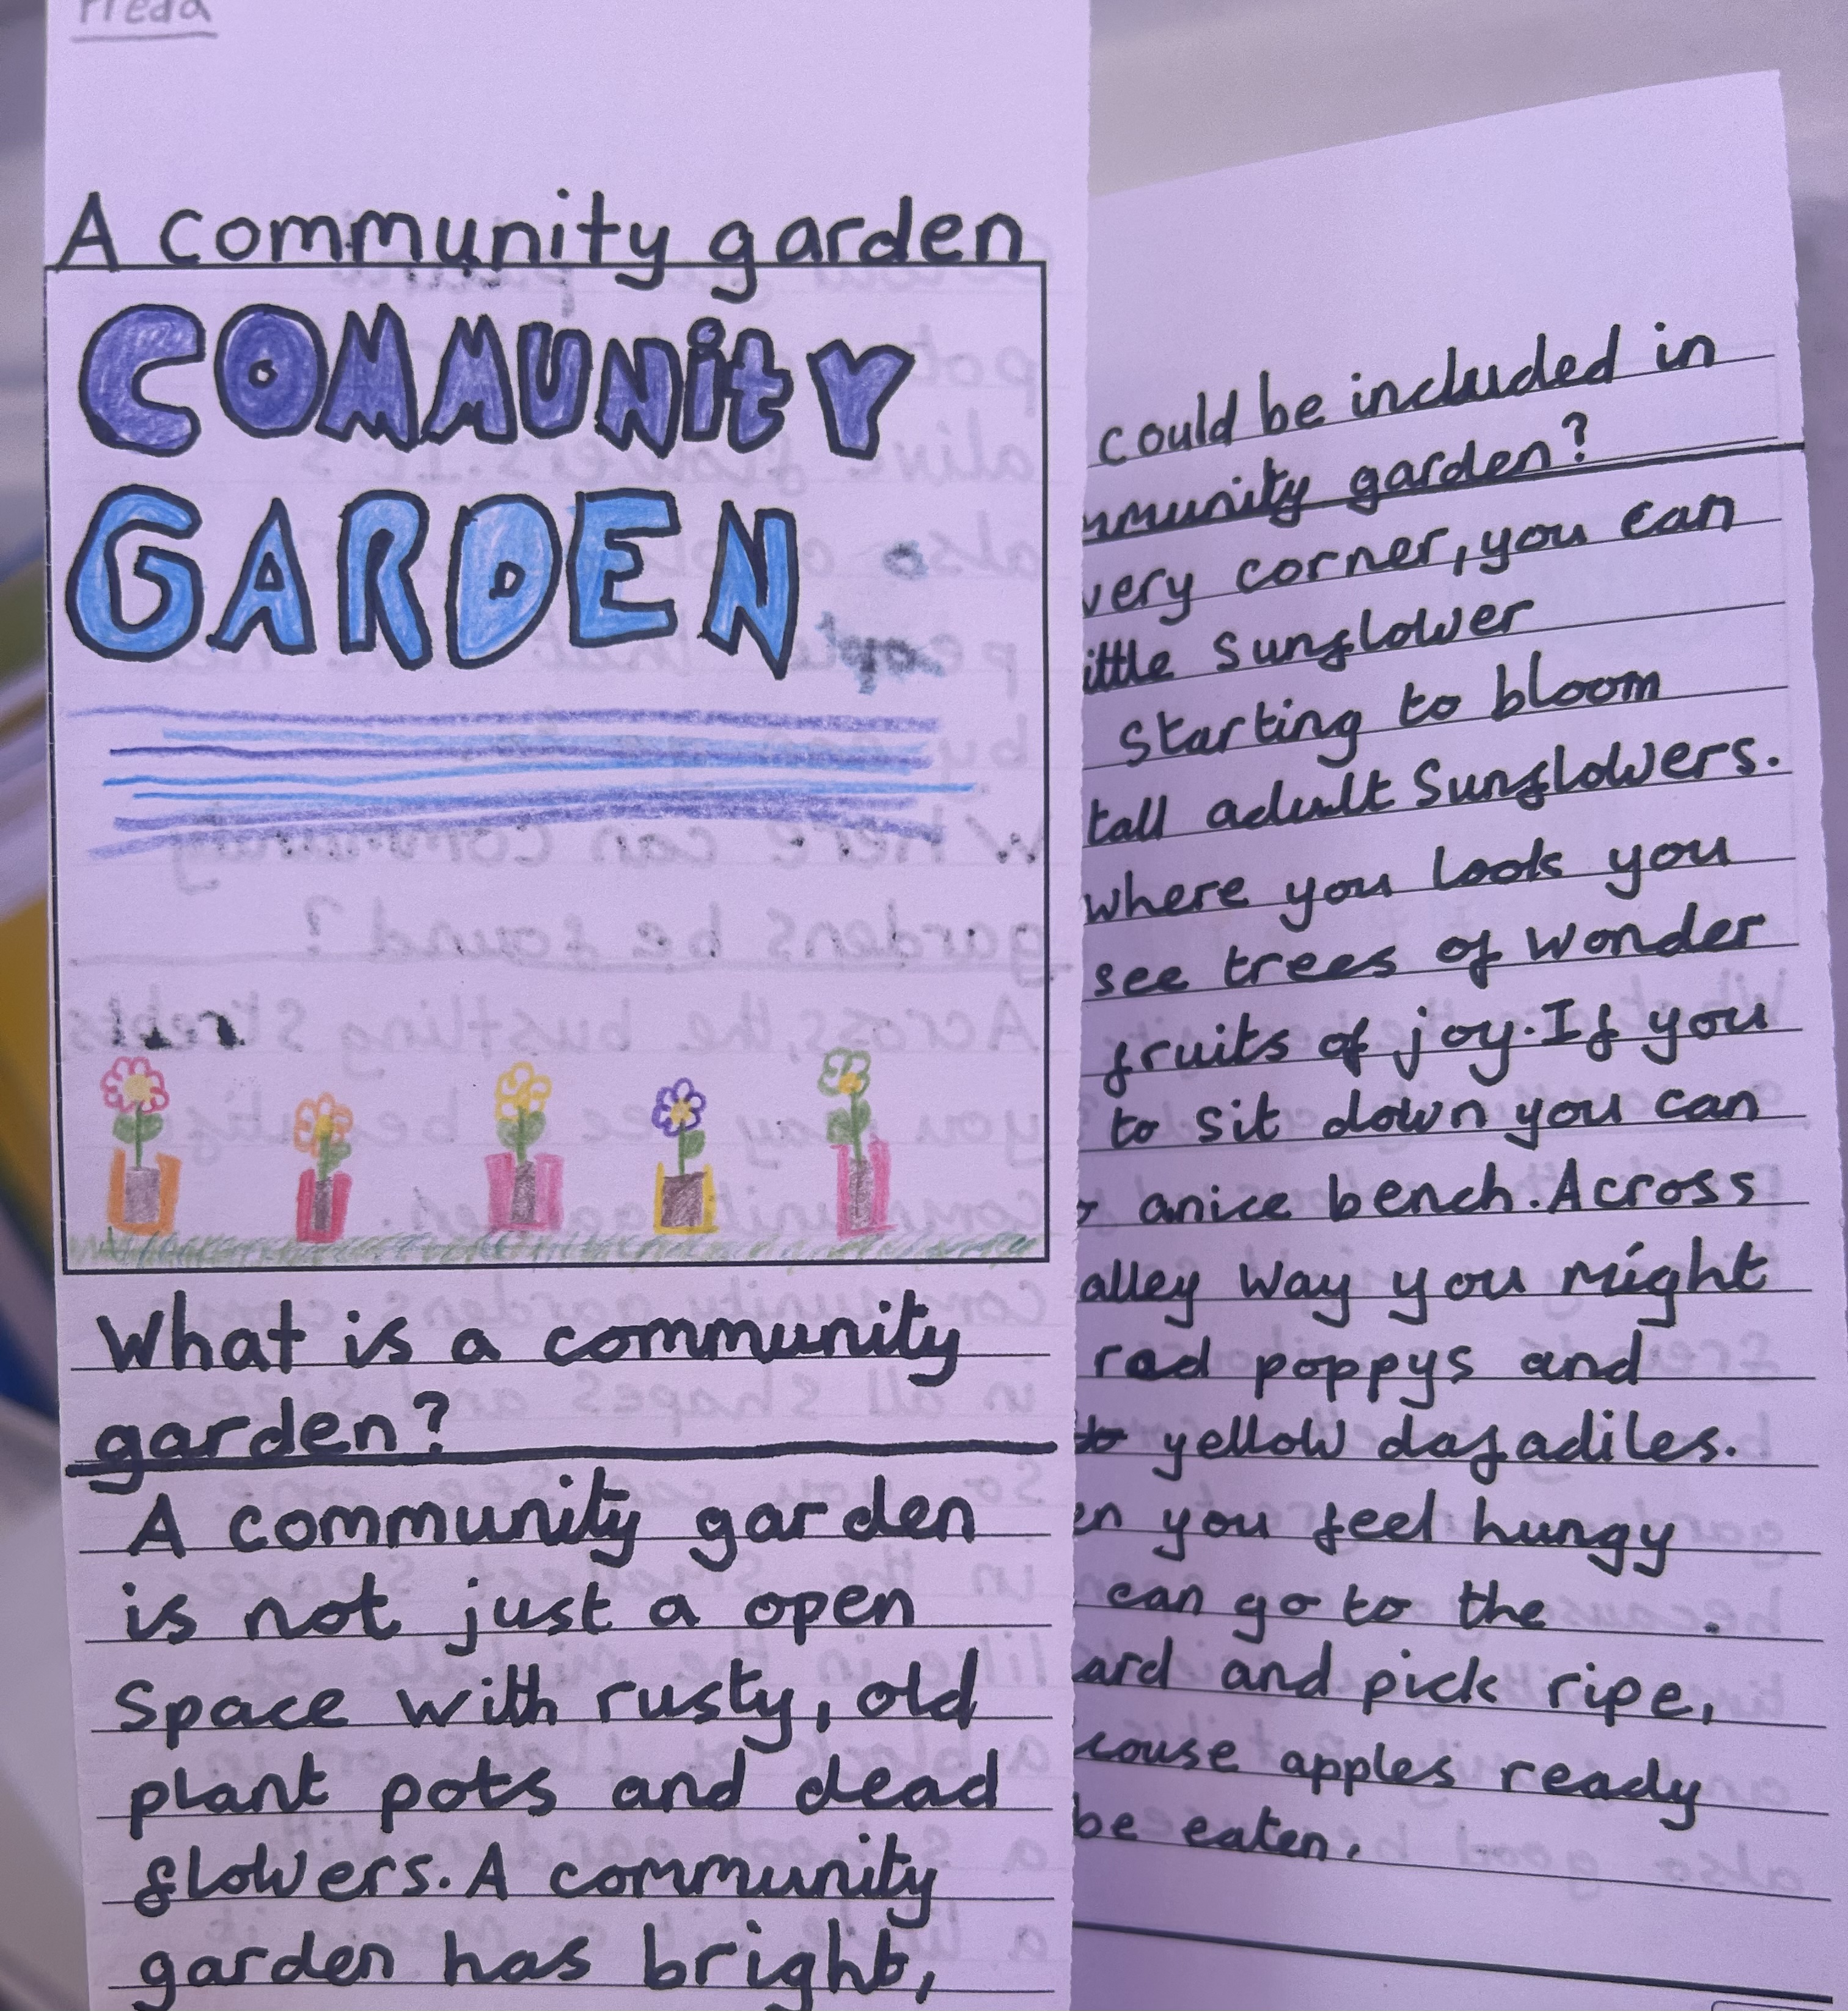 Freda
A community garden
COMMUNitY
GARDEN
What is a community
garden?
A community garden
is not just a open
Space with rusty, old
plant pots and dead
flowers. A community
garden has bright,
could be included in
munity garden?
very corner, you can
ittle Sunflower
Starting to bloom
tall adult Sunflowers.
where you look you
see trees of wonder
fruits of joy. If you
to sit down you can
anice bench. Across
alley way you might
red poppys and
yellow dafadiles.
en you feel hungy
can go to the
ard and pick ripe,
couse apples ready
be eaten.